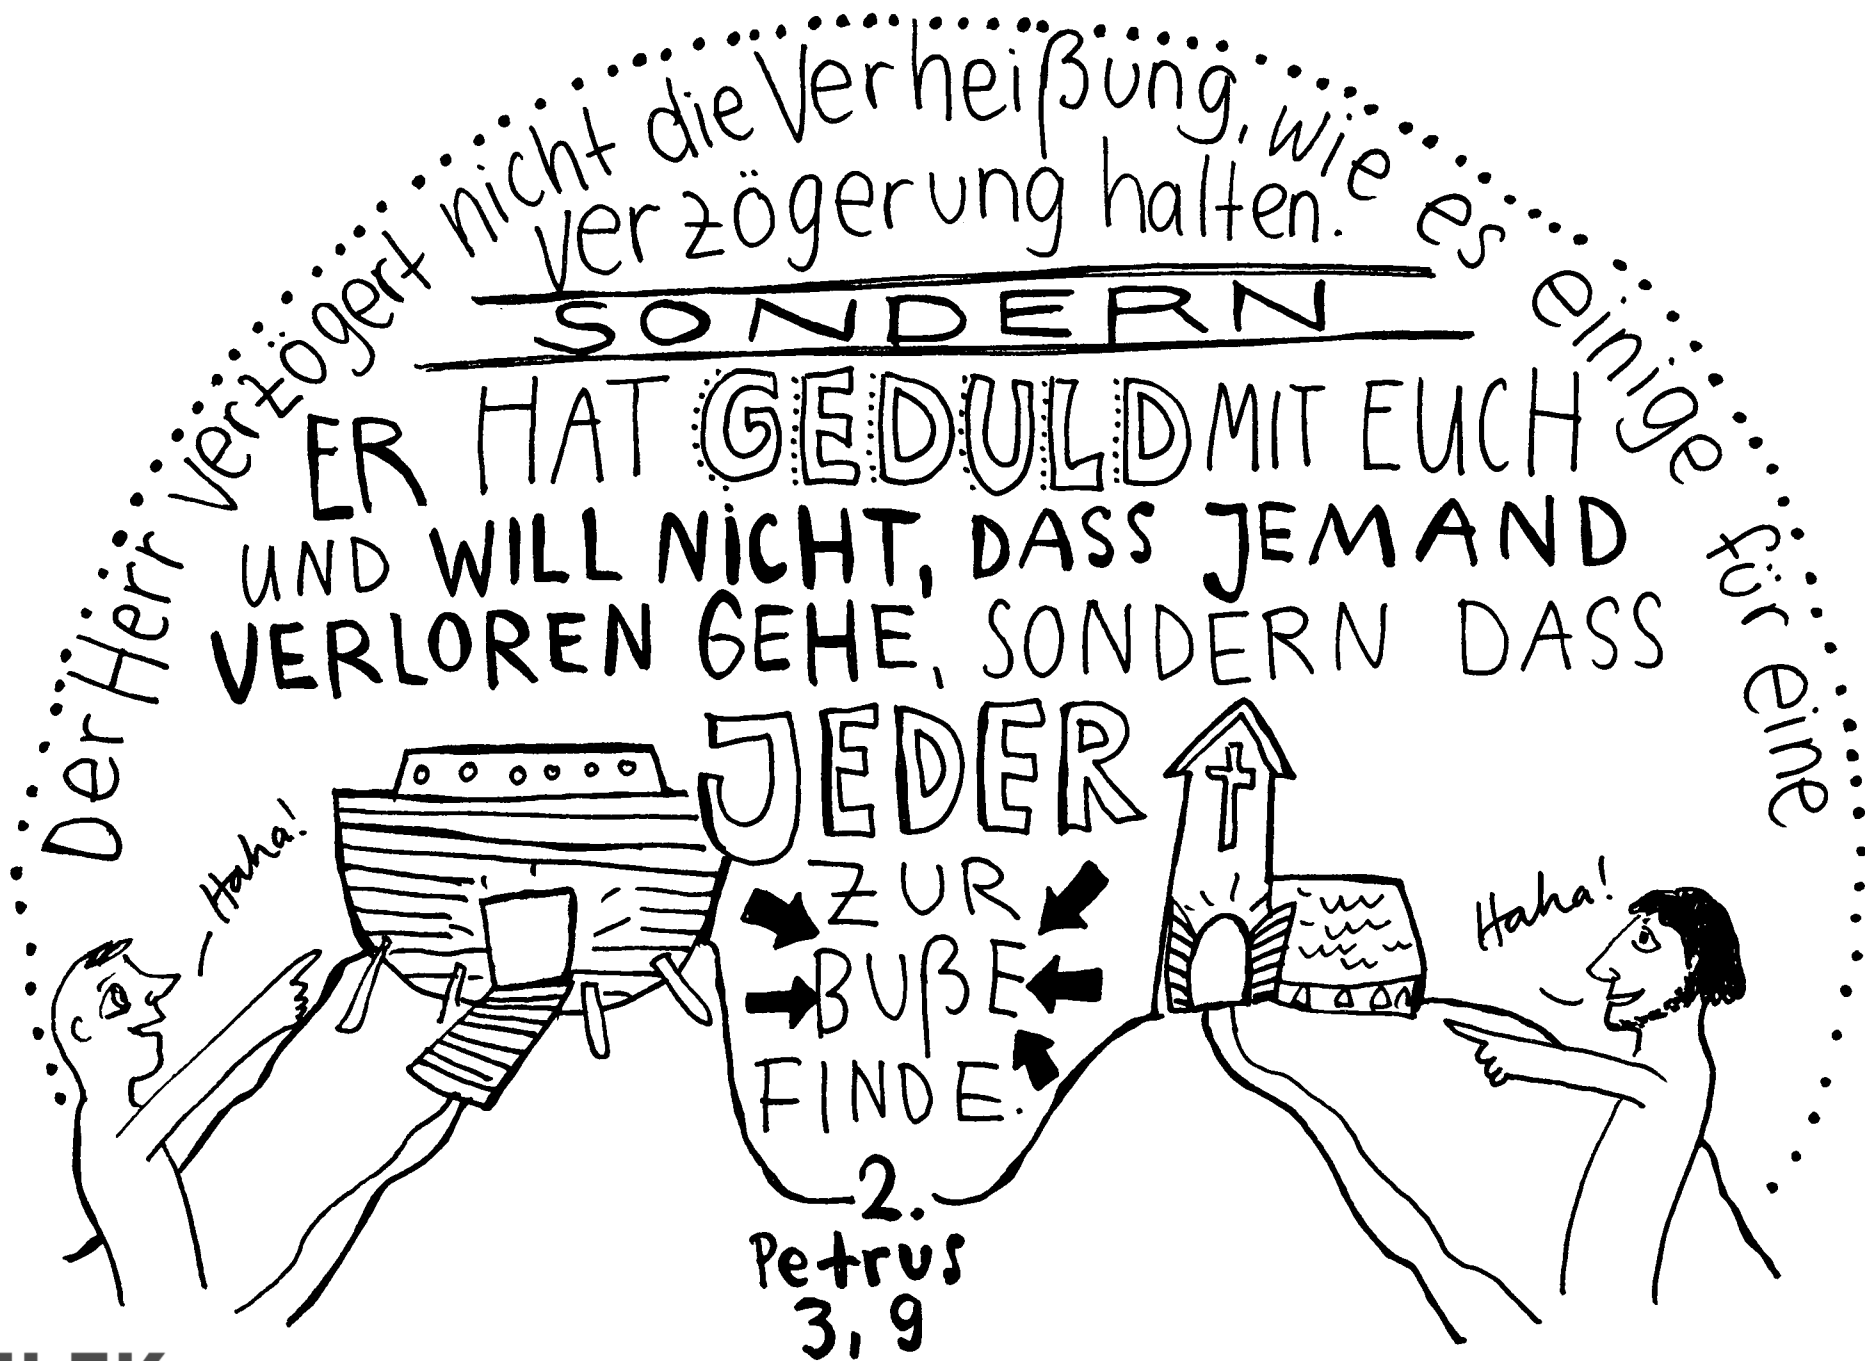 Der Herr verzögert nicht die Verheißung, wie es einige für eine
verzögerung halten.
SONDERN
ER HAT GEDULD MIT EUCH
UND WILL NICHT, DASS JEMAND
VERLOREN GEHE, SONDERN DASS
JEDER
ZUR
BUßE
FINDE.
Haha!
Haha!
2.
Petrus
3,9